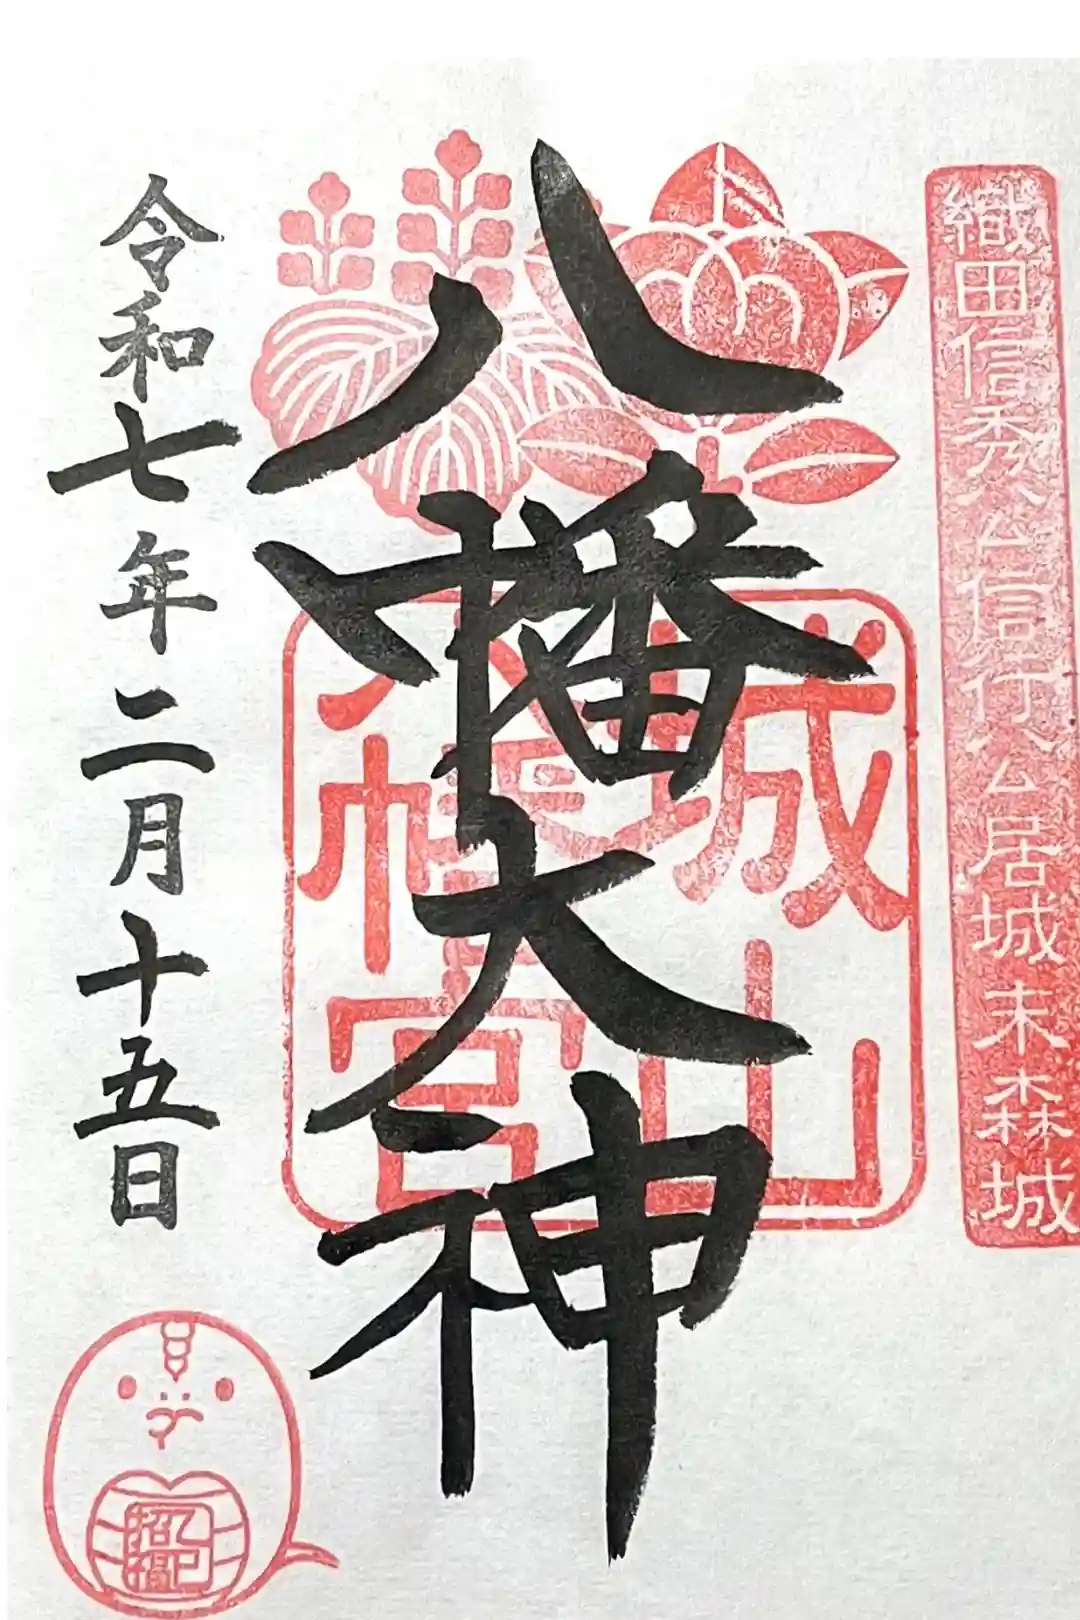 織田信秀公信行公居城末森城
八幡大神
城山
八幡宮
令和七年二月十五日
乙巳
招福